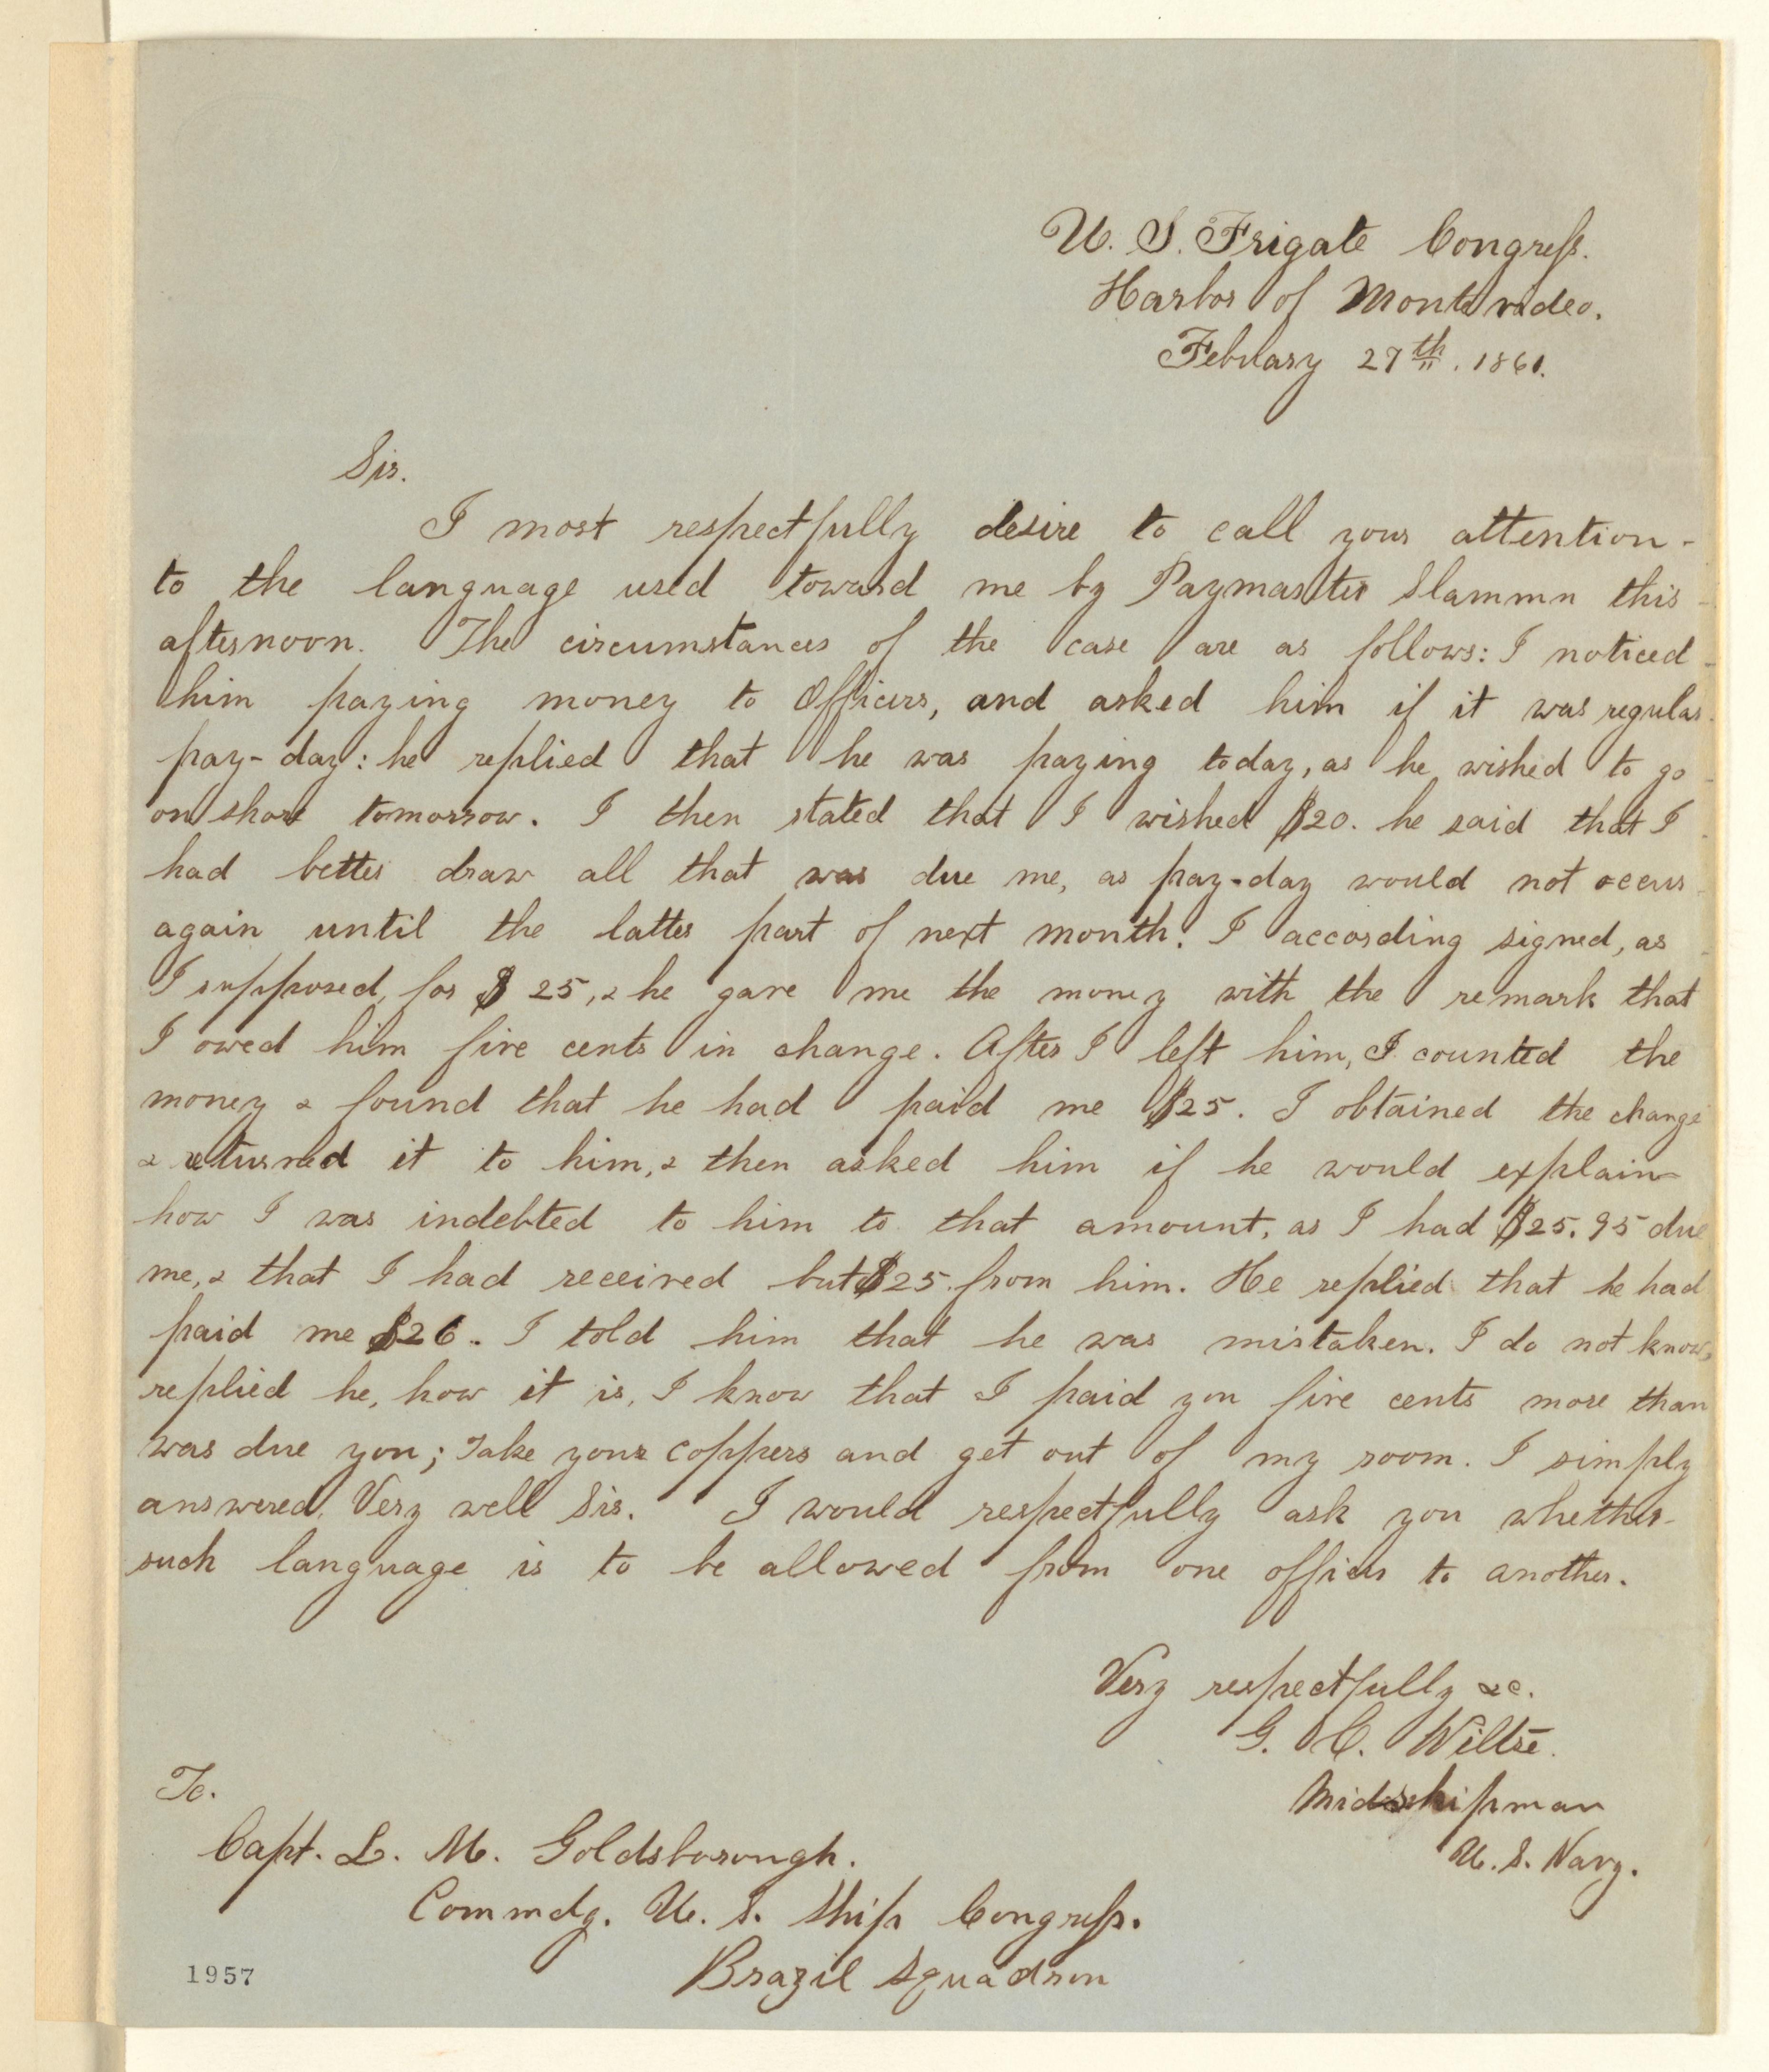 U. S. Frigate Congress.
Harbor of Montevideo.
February 27th. 1861.
Sir.
I most respectfully desire to call your attention
to the language used toward me by Paymaster Slammn this
afternoon. The circumstances of the case are as follows: I noticed
him paying money to Officers, and asked him if it was regular
pay-day: he replied that he was paying today, as he wished to go
on shore tomorrow. I then stated that I wished $20. he said that I
had better draw all that was due me, as pay-day would not occur
again until the latter part of next month. I according signed, as
I supposed, for $25, & he gave me the money with the remark that
I owed him five cents in change. After I left him, I counted the
money & found that he had paid me $25. I obtained the change
& returned it to him, & then asked him if he would explain
how I was indebted to him to that amount, as I had $25.95 due
me, & that I had received but $25 from him. He replied that he had
paid me $26. I told him that he was mistaken. I do not know,
replied he, how it is, I know that I paid you five cents more than
was due you; Take your coppers and get out of my room. I simply
answered, Very well Sir. I would respectfully ask you whether
such language is to be allowed from one officer to another.
Very respectfully &c.
G. C. Wiltse.
Midshipman
U. S. Navy.
To.
Capt. L. M. Goldsborough.
Commdg. U. S. Ship Congress.
Brazil Squadron
1957